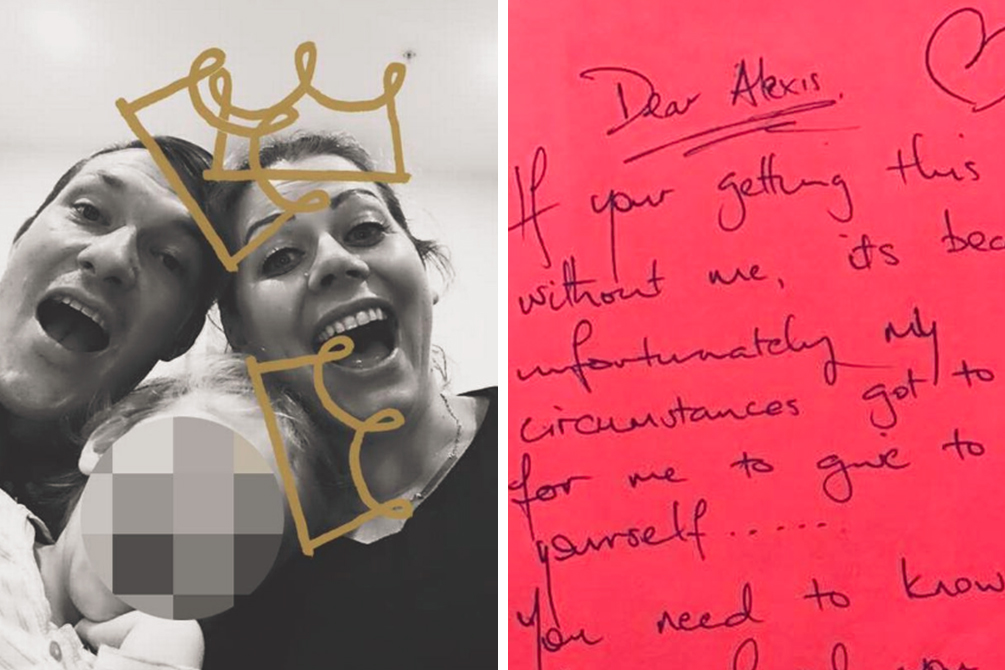 Dear Alexis.
If your getting this
without me, its bec
unfortunately my
circumstances got to
for me to give to
yourself ......
You need to know